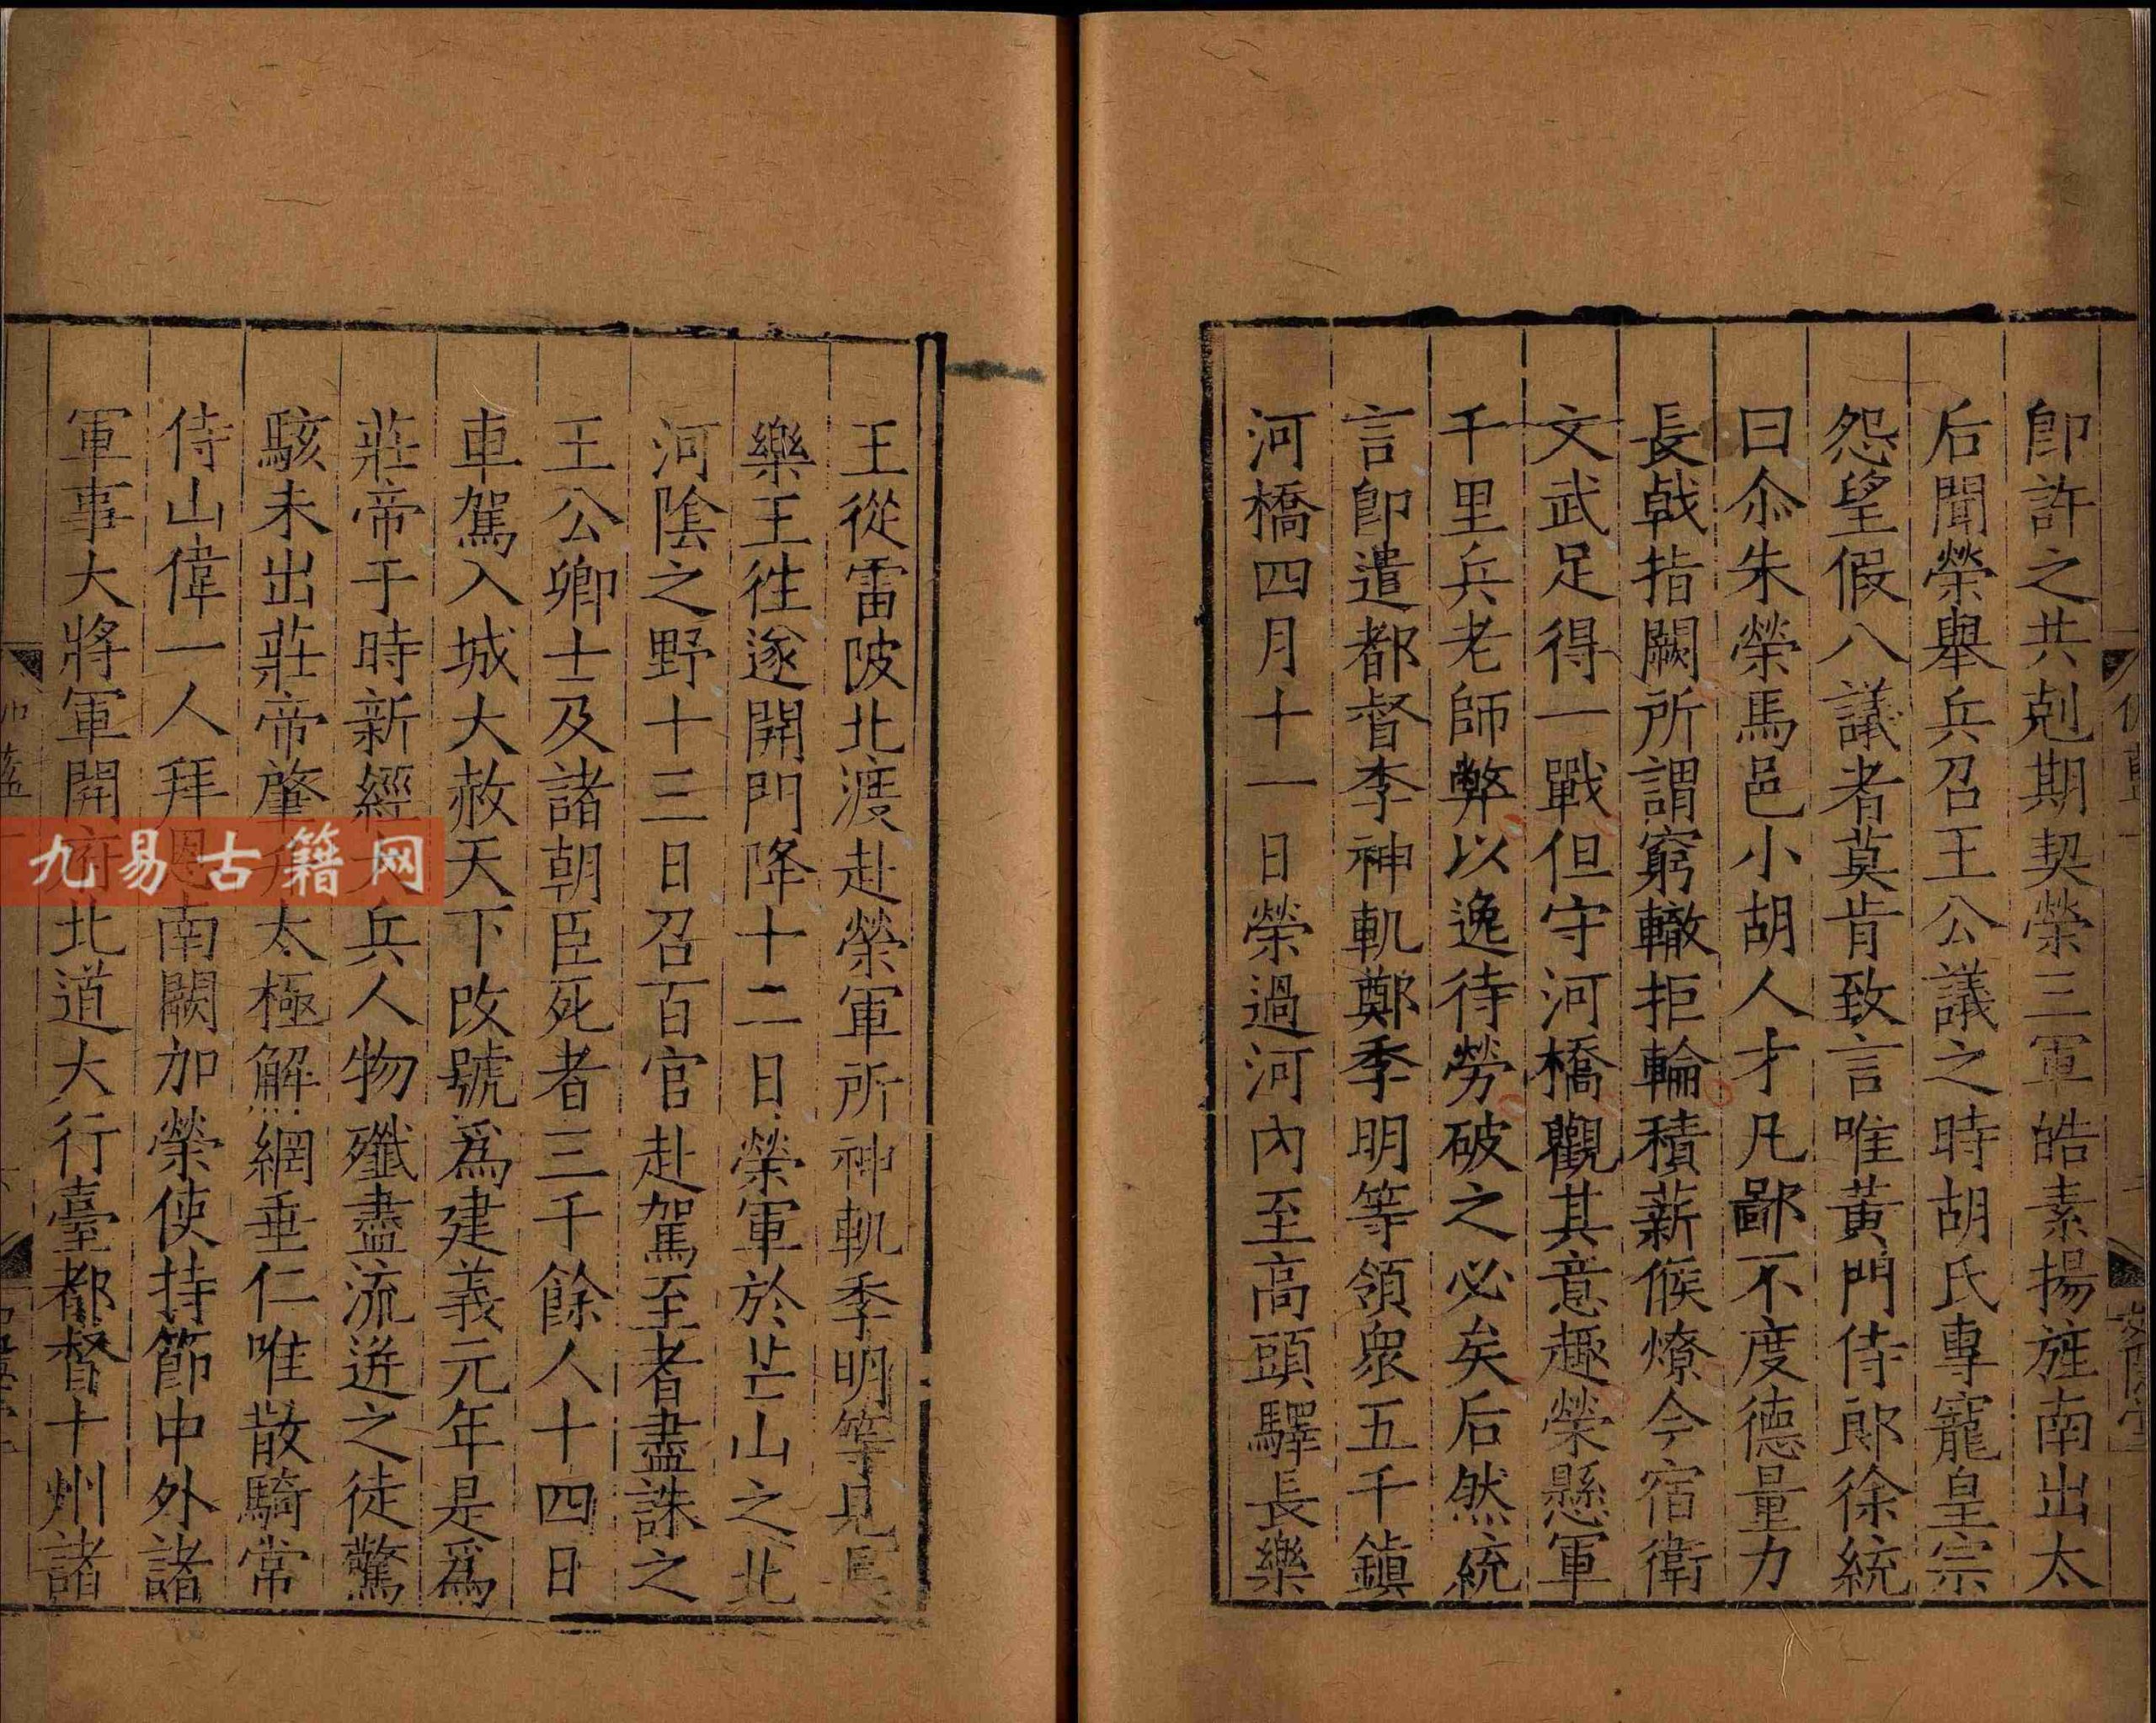 卽許之共剋期契榮三軍皓素揚旌南出太
后聞榮舉兵召王公議之時胡氏專寵皇宗
怨望假八議者莫肯致言唯黃門侍郎徐統
曰尒朱榮馬邑小胡人才凡鄙不度德量力
長戟指闕所謂窮轍拒輪積薪候燎今宿衛
文武足得一戰但守河橋觀其意趣榮懸軍
千里兵老師弊以逸待勞破之必矣后然統
言卽遣都督李神軌鄭季明等領衆五千鎮
河橋四月十一日榮過河內至高頭驛長樂
王從雷陂北渡赴榮軍所神軌季明等見長
樂王徃遂開門降十二日榮軍於芒山之北
河陰之野十三日召百官赴駕至者盡誅之
王公卿士及諸朝臣死者三千餘人十四日
車駕入城大赦天下改號爲建義元年是爲
莊帝于時新經大兵人物殲盡流迸之徒驚
駭未出莊帝肇升太極解網垂仁唯散騎常
侍山偉一人拜恩南闕加榮使持節中外諸
軍事大將軍開府北道大行臺都督十州諸
九易古籍网